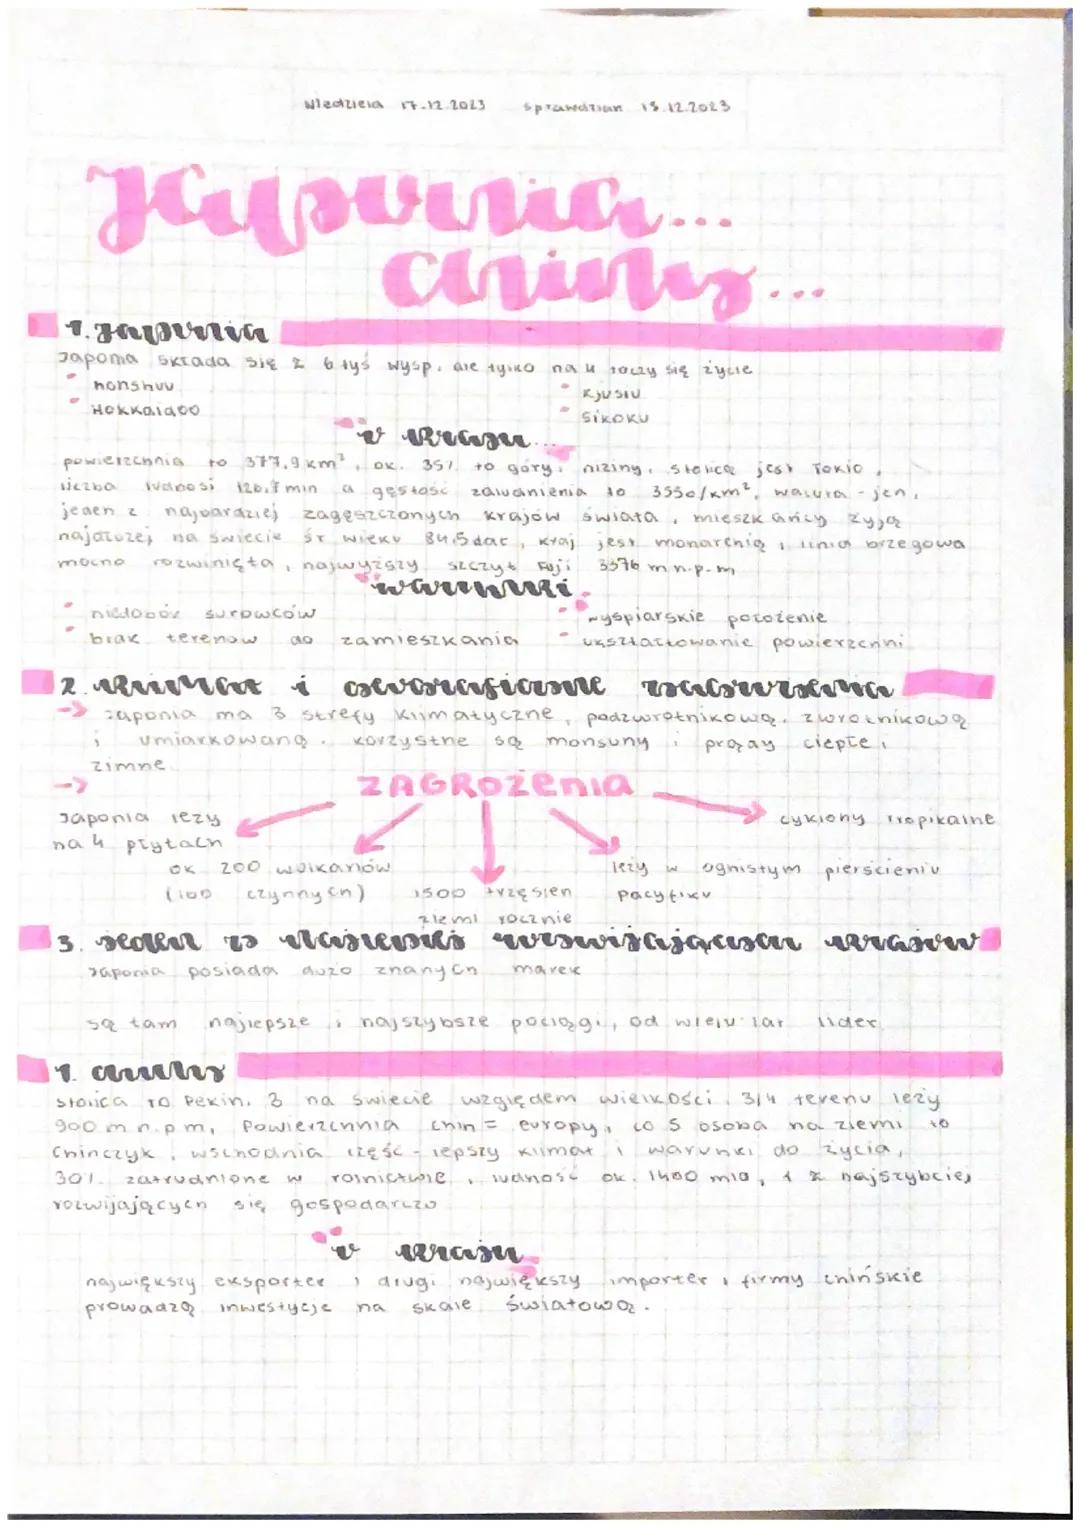 Niedziela 17.12.2023 sprawdzian 18.12.2023
Japonia...
Chiny...
1. Japonia
Japonia składa się z 6 tyś wysp, ale tylko na 4 toczy się życie
• honshuu • Kjusiu
• Hokkaidoo • Sikoku
O kraju...
powierzchnia to 377,9 km², ok. 35% to góry i niziny, stolicą jest Tokio,
liczba ludnosi 126,7 mln a gęstość zaludnienia to 3350/km², waluta - jen,
jeden z najbardziej zagęszczonych krajów świata, mieszkańcy żyją
najdłużej na świecie śr wieku 84,5 dat, kraj jest monarchią, linia brzegowa
mocno rozwinięta, najwyższy szczyt Fuji 3376 m n.p.m
warunki
• niedobór surowców • wyspiarskie położenie
• brak terenów do zamieszkania • ukształtowanie powierzchni
2. Klimat i
-> Japonia ma 3 strefy klimatyczne, podzwrotnikową, zwrotnikową
i umiarkowaną. Korzystne są monsuny i prądy ciepłe i
zimne
-> ZAGROżenia
Japonia leży cyklony tropikalne
na 4 płytach
ok 200 wulkanów leży w ognistym pierścieniu
(100 czynnych) 1500 trzęsień pacyfiku
ziemi rocznie
3. Jeden z najlepiej rozwijających krajów
Japonia posiada dużo znanych marek
są tam najlepsze i najszybsze pociągi, od wielu lat lider
1. Chiny
stolica to Pekin, 3 na świecie względem wielkości, 3/4 terenu leży
900 m n.p.m, Powierzchnia chin = europy, co 5 osoba na ziemi to
Chińczyk, wschodnia część - lepszy klimat i warunki do życia,
30% zatrudnione w rolnictwie, ludność ok. 1400 mld, 1 z najszybciej
rozwijających się gospodarczo
O kraju
największy eksporter i drugi największy importer, firmy chińskie
prowadzą inwestycje na skale światową.